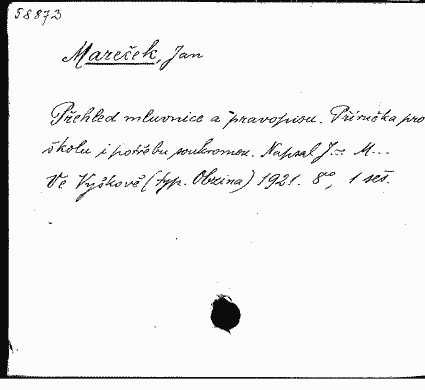 58873
Mareček, Jan
Přehled mluvnice a pravopisu. Příručka pro
školu i potřebu soukromou. Napsal J... M...
Ve Vyškově (typ. Obzina) 1921. 8º, 1 seš.